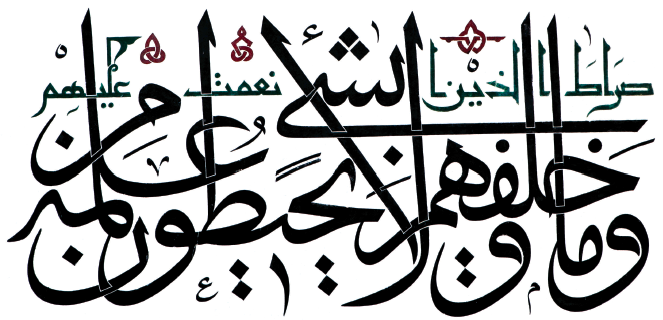 صراط الذين أنعمت عليهم
وما خلفهم ولا يحيطون بشيء من علمه